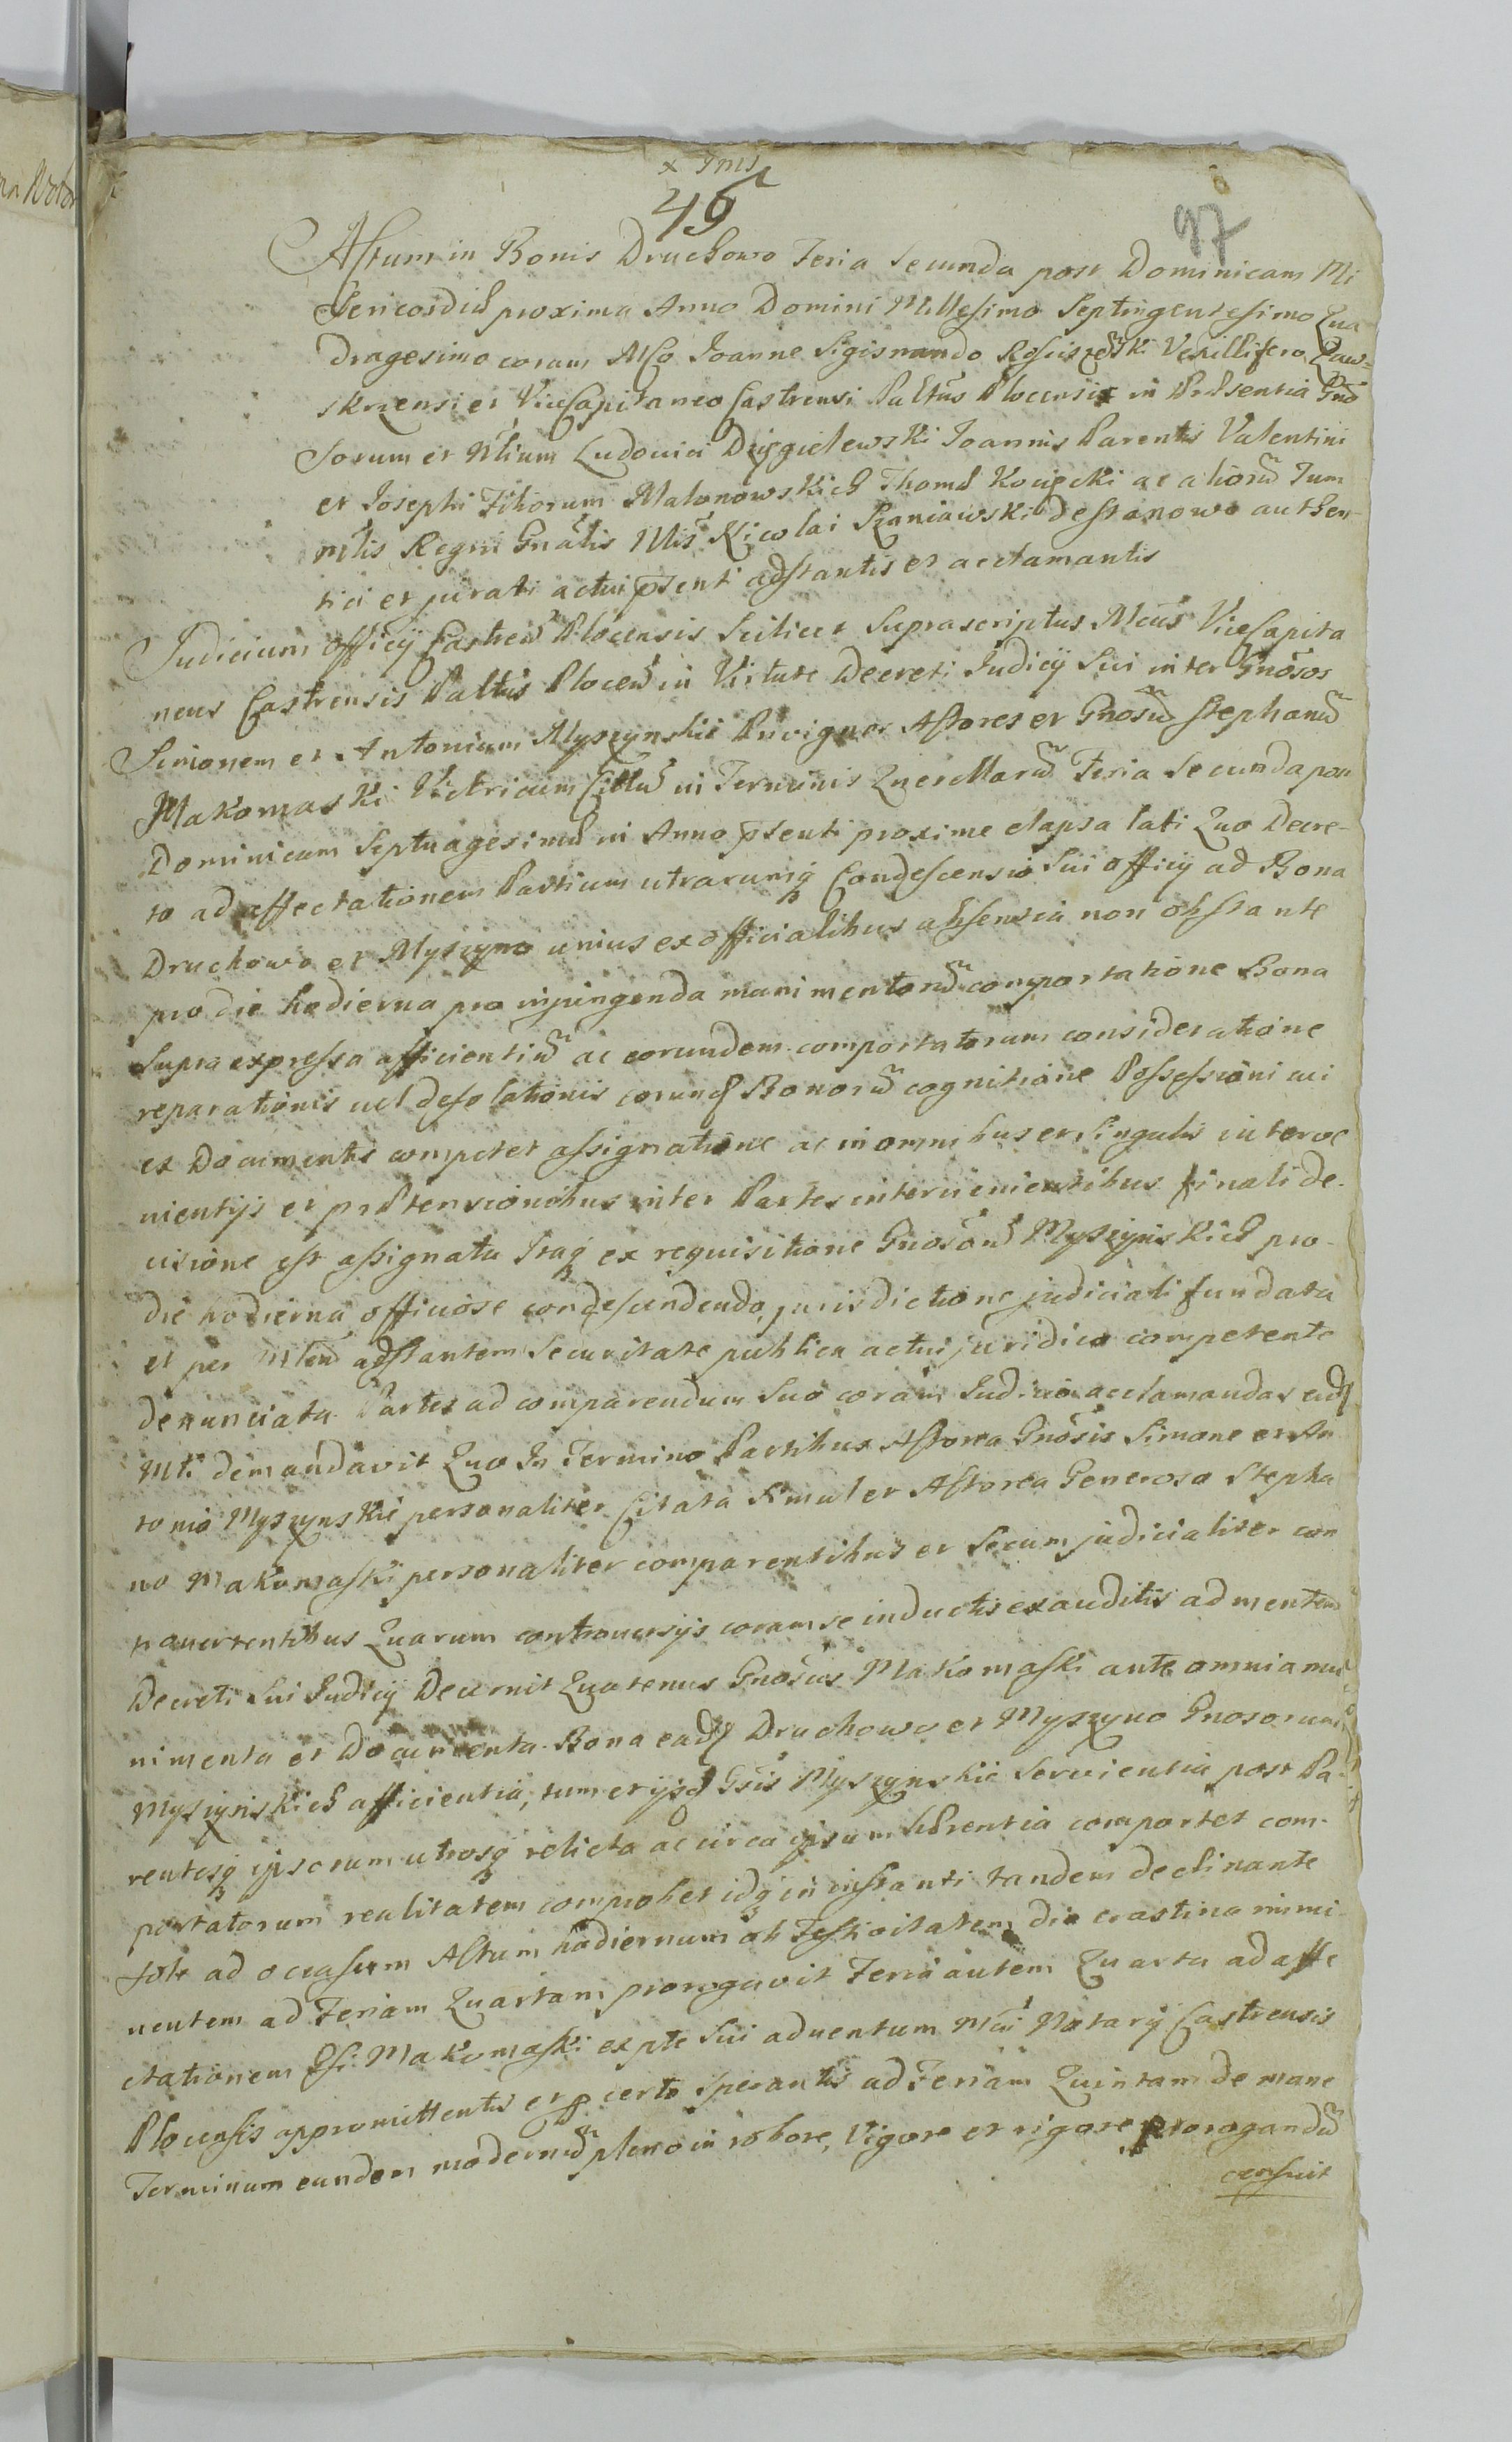 x Ims
45
97
Actum in Bonis Druchowo Feria Secunda post Dominicam Mi
sericordiæ proxima Anno Domini Millesimo Septingentesimo Qua
dragesimo coram Mco Joanne Sigismundo Vexillifero Zaw=
skrzensi et ViceCapitaneo Castrensi Paltus Plocensis in Præsentia Gno
sorum et Nlium Ludovici Dzięgielewski Joannis Parentis Valentini
et Josephi Filiorum Malonowskich Thomæ Kocięcki ac alioru Tum
mtlis Regni Gnalis Nlis Nicolai Szaniawski de authen
tici et jurati actui pñsenti adstantis et acclamantis
Judicium Officij Castren Plocensis Scilicet Suprascriptus Mcus ViceCapita
neus Castrensis Paltus Plocen in Virtute Decreti Judicij Sui inter Gnosos
Simonem et Antonium Myszynskie Privignos Actores et Gnosu Stephanu
Makomaski Vitricum Citatu in Terminis Querellaru Feria Secunda post
Dominicam Septuagesimæ in Anno pñsenti proxime elapsa lati Quo Decre-
to ad affectationem Partium utrarumq Condescensio Sui officij ad Bona
Druchowo et Myszyno unius ex officialibus absentia non obstante
pro die hodierna pro inpingenda munimentoru comportatione Bona
Supra expressa afficientiu ac eorundem comportatorum consideratione
reparationis vel desolationis eorund Bonoru cognitione Possessioni cui
ex Documentis competet assignatione ac in omnibus et Singulis interve
nientijs et prætensionibus inter Partes intervenientibus finali de-
cisione est assignata Itaq ex requisitione Gnosoru Myszynskich pro
die hodierna officiose condescendendo, jurisdictione judiciali fundata
et per Mlem adstantem Securitate publica actui juridico competente
denunciata Partes ad comparendum Suo coram Judicio acclamandas eid
Mli demandavit Quo In Termino Partibus Actorea Gnosis Simone et An
tonio Myszynskie personaliter Citata Simul et Actorea Generoso Stepha
no Makomaski personaliter comparentibus et Secum judicialiter con
travertentibus Quarum controversijs coram se inductis exauditis ad mentem
Decreti Sui Judicij Decernit Quatenus Gnosus Makomaski ante omnia mu
nimenta et Documenta Bona ead Druchowo et Myszyno Gnosorum
Myszynskich afficientia, tum et ijsd Gsis Myszynskie Servientia post Pa
rentesq ipsorum utrosq relicta ac circa ipsum hærentia comportet com-
portatorum realitatem comprobet idq in instanti tandem declinante
sole ad occasum Actum hodiernum ob Festivitatem die crastina immi
nentem ad Feriam Quartam prorogavit Feria autem Quarta ad affe
ctationem Gsi Makomaski ex pte Sui adventum Mci Notarij Castrensis
Plocensis appromittentis et p certo Sperantis ad Feriam Quintam de mane
Terminum eundem modernu pleno in robore, Vigore et rigore prorogandu
censuit